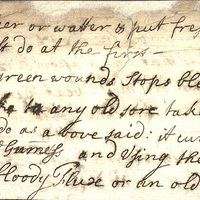 eer or watter & put fres
st do at the first
green wounds stops ble
to any old sore take
do as a bove said: it cur
and Using the
bloody Flux or an old